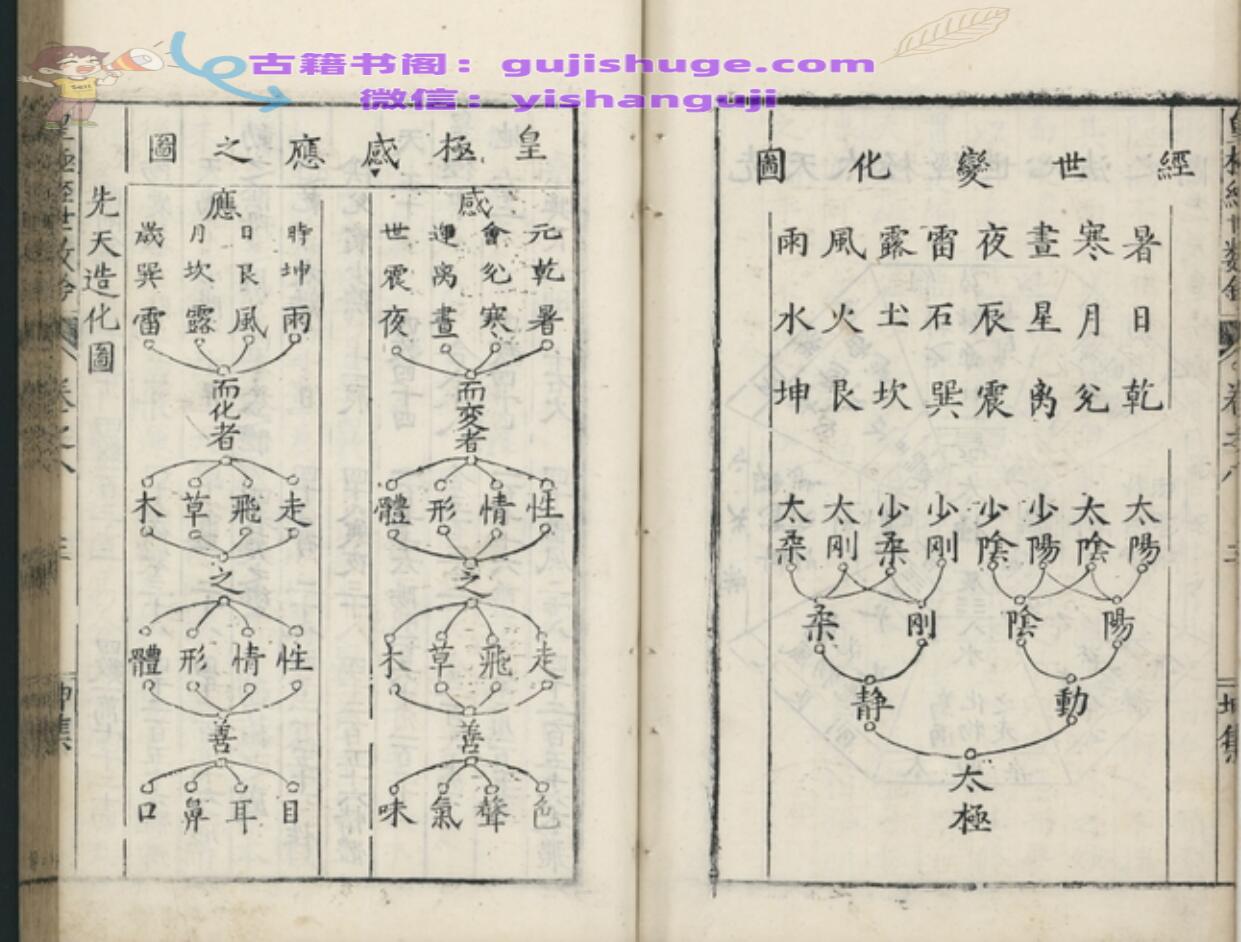 古籍书阁：gujishuge.com
微信：yishanguji
經世變化圖
暑寒晝夜雷露風雨
日月星辰石土火水
乾兌离震巽坎艮坤
太陽 太陰 少陽 少陰 少剛 少柔 太剛 太柔
陽 陰 剛 柔
動 静
太極
坤集
皇極感應之圖
感
元會運世
乾兌离震
暑寒晝夜
而変者
性情形體
之
走飛草木
善
色聲氣味
應
時日月歲
坤艮坎巽
雨風露雷
而化者
走飛草木
之
性情形體
善
目耳鼻口
先天造化圖